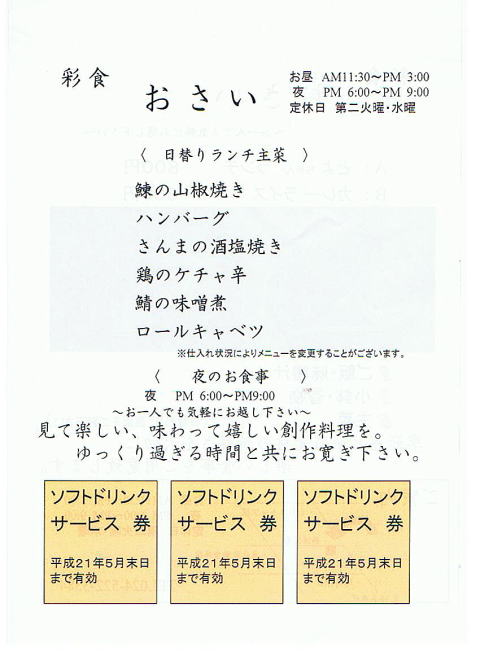 彩食
おさい
お昼 AM11:30～PM 3:00
夜 PM 6:00～PM 9:00
定休日 第二火曜・水曜
〈 日替りランチ主菜 〉
鰊の山椒焼き
ハンバーグ
さんまの酒塩焼き
鶏のケチャ辛
鯖の味噌煮
ロールキャベツ
※仕入れ状況によりメニューを変更することがございます。
〈 夜のお食事 〉
夜 PM 6:00～PM9:00
～お一人でも気軽にお越し下さい～
見て楽しい、味わって嬉しい創作料理を。
ゆっくり過ぎる時間と共にお寛ぎ下さい。
ソフトドリンク
サービス 券
平成21年5月末日
まで有効
ソフトドリンク
サービス 券
平成21年5月末日
まで有効
ソフトドリンク
サービス 券
平成21年5月末日
まで有効